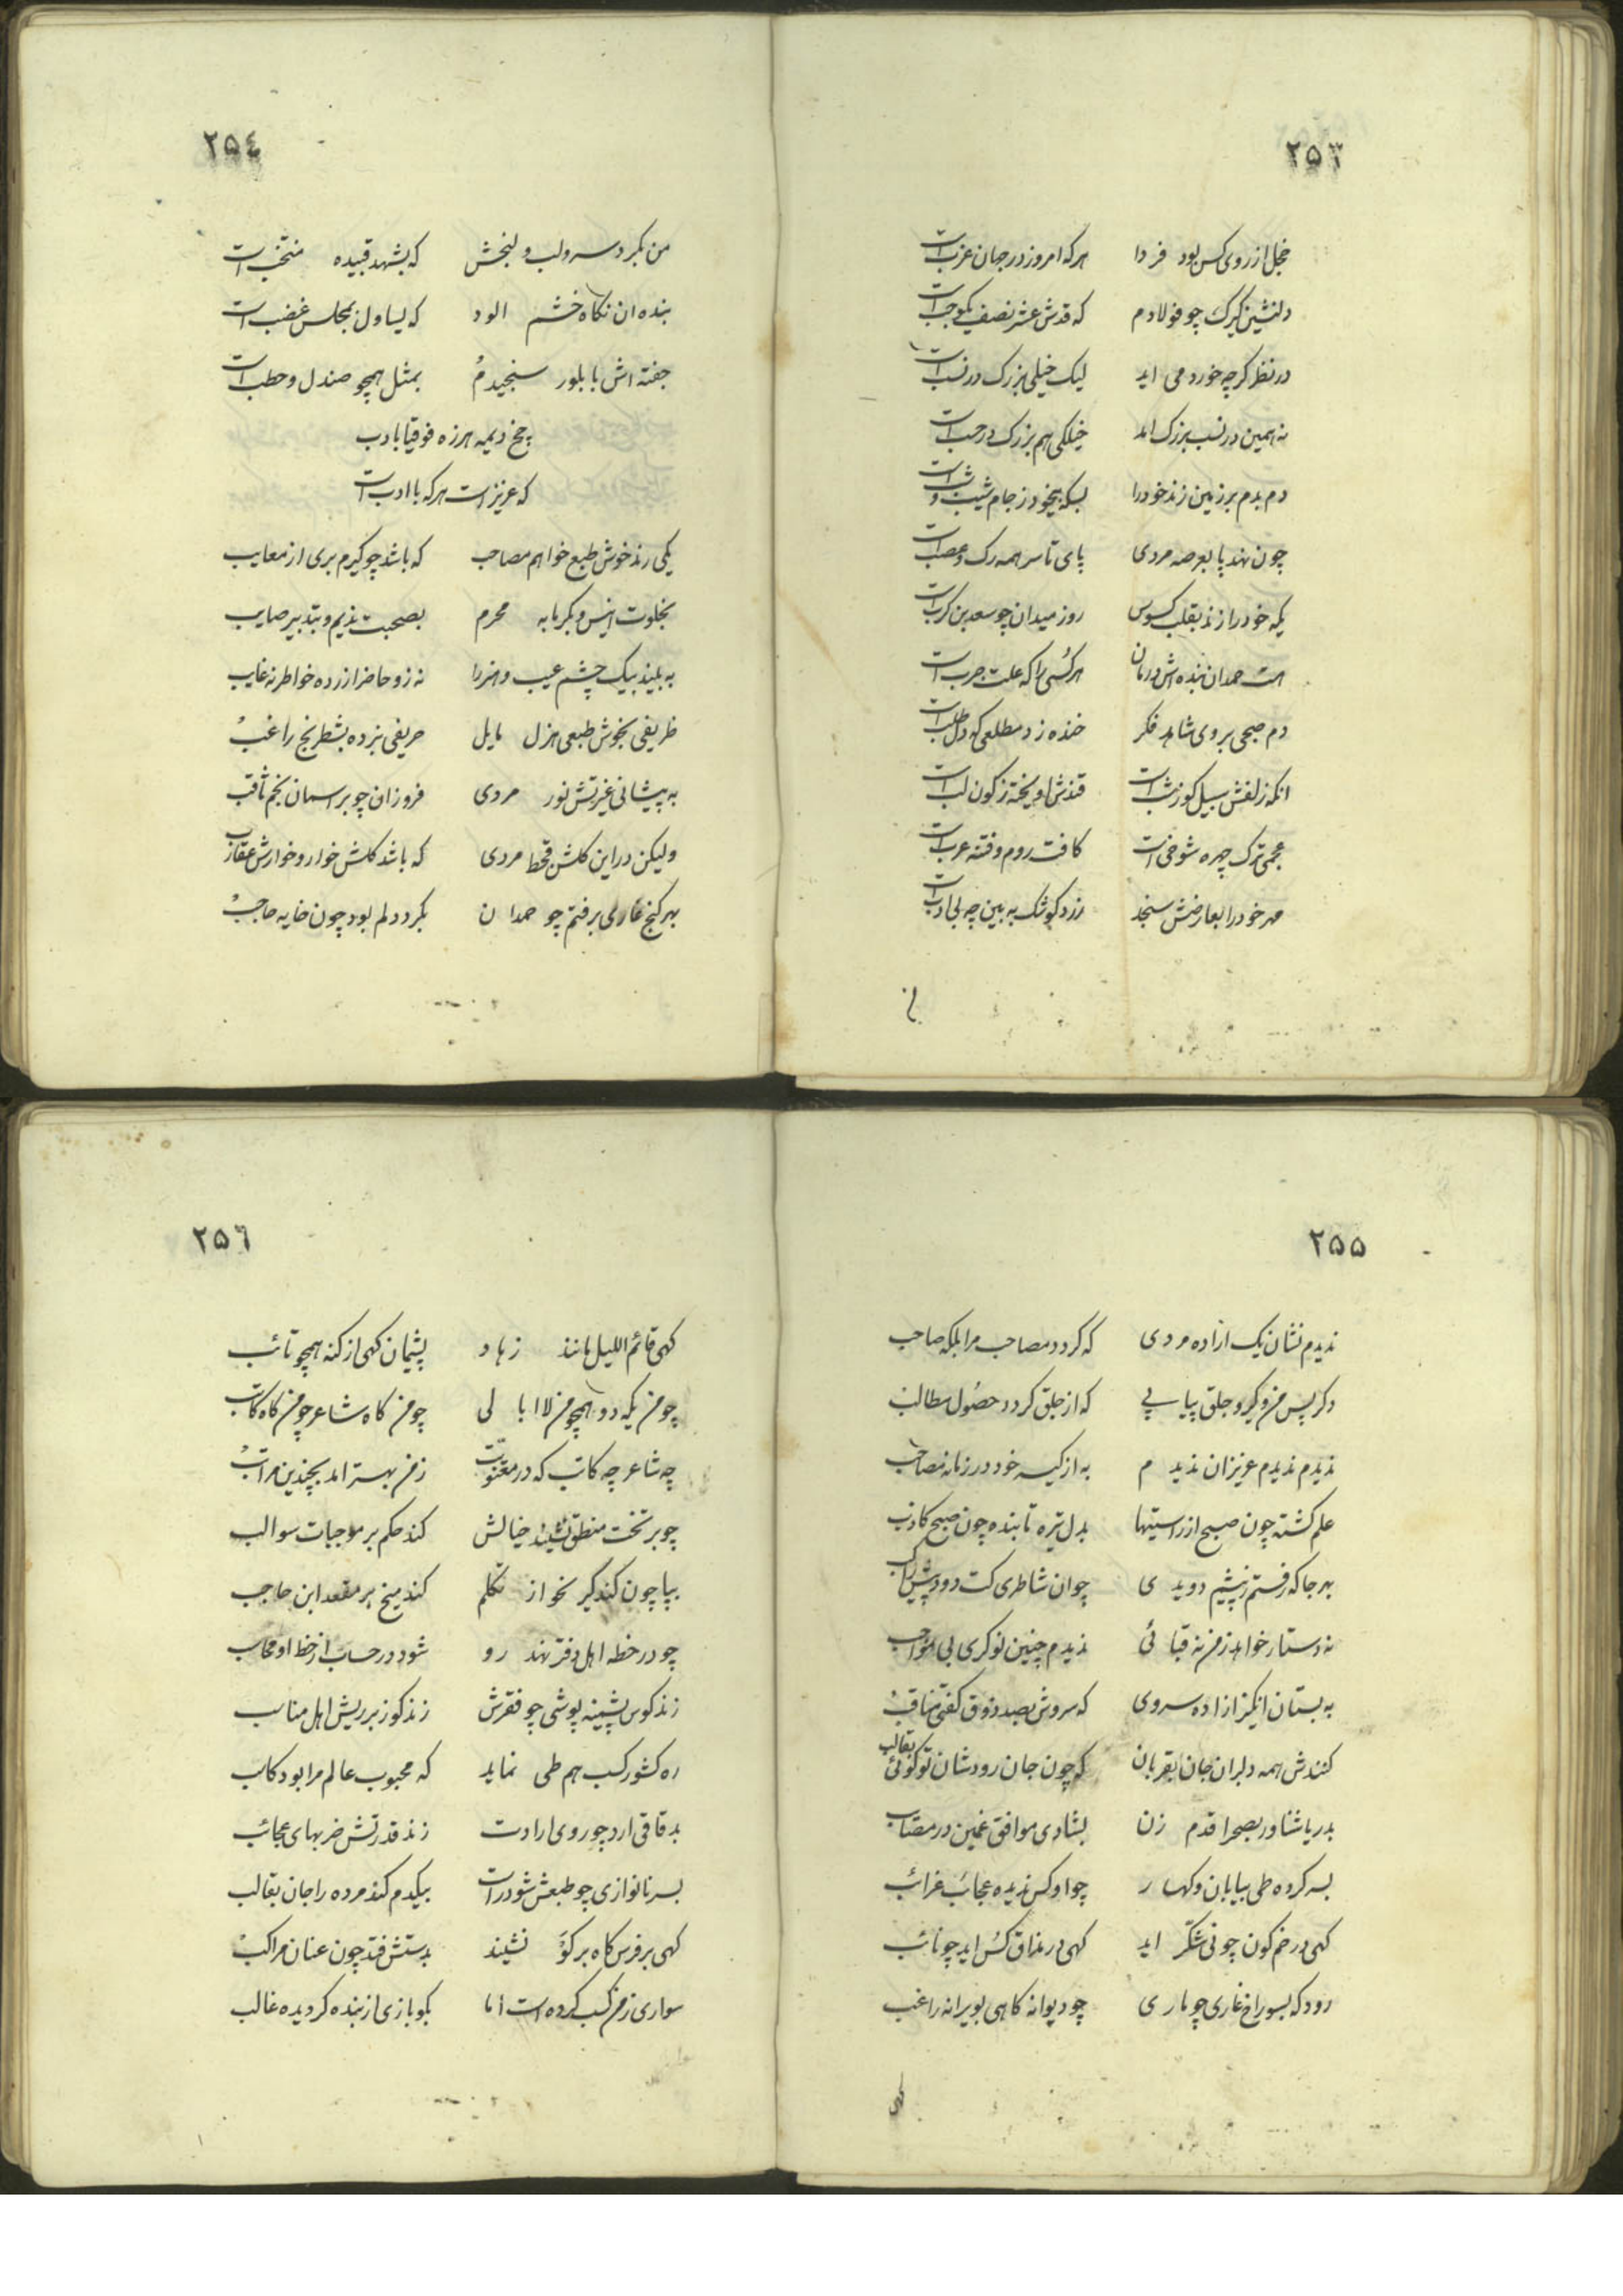 ۲۵۳
خجل از روی کس بود فردا هرکه امروز در جهان عزب است
دلنشین کیرک چو فولادم که قدش عشر نصف یکوجب است
در نظر کرچه خورد می اید لیک خیلی بزرک در نسب است
نه همین در نسب بزرک امد خیلکی هم بزرک در حسب است
دم بدم بر زمین زند خود را بسکه بیخود ز جام
چون نهد پا بعرصه مردی پای تا سر همه رک و عصب است
یکه خود را زند بقلب کسوس روز میدان چو سعد بن کرب است
هست حمدان بنده اش درمان هر کسی را که علت جرب است
دم صبحی بروی شاهد فکر خنده زد مطلعی که دل طلب است
انکه زلفش سیل کوزشب است قندش اویخته ز کون لب است
عجمی ترک چهره شوخی است کافت روم و فتنه عرب است
مهر خود را بعارضش سنجد زرد کوشک به بین چه بی ادب است
۲۵٤
من بکرد سر و لب و لنجش که بشهد قبیده منتخب است
بنده ان نکاه خشم الود که یساول بمجلس غضب است
جفته اش با بلور سنجیدم بمثل همچو صندل و حطب است
چخ دیمه هرزه فوقیا بادب
که عزیز است هرکه با ادب است
یکی رند خوش طبع خواهم مصاحب که باشد چو کیرم بری از معایب
بخلوت انیس و بکرمابه محرم بصحبت ندیم و بتدبیر صایب
به بیند بیک چشم عیب و هنر را نه زو حاضر ازرده خاطر نه غایب
ظریفی بخوش طبعی هزل مایل حریفی بنرد و بشطرنج راغب
به پیشانی غیرتش نور مردی فروزان چو بر اسمان نجم ثاقب
ولیکن در این کلشن قحط مردی که باشد کلش خوار و خوارش عقارب
بهر کنج غاری برفتم چو حمدان بکرد دلم بود چون خایه حاجب
۲۵۵
ندیدم نشان یک ازاده مردی که کردد مصاحب مرا بلکه صاحب
دکر پس من و کیر و جلق پیاپی که از جلق کردد حصول مطالب
ندیدم ندیدم عزیزان ندیدم به از کیسه خود در زمانه مصاحب
علم کشته چون صبح از راستیها بدل تیره تابنده چون صبح کاذب
بهر جا که رفتم ز پیشم دویدی چو ان شاطری کت دود پیش راکب
نه دستار خواهد ز من نه قبائی ندیدم چنین نوکری بی مواجب
به بستان انکیز ازاده سروی که سروش بصد ذوق کفتی مناقب
کنندش همه دلبران جان بقربان که چون جان رودشان تو کوئی بقالب
بدریا شناور بصحرا قدم زن بشادی موافق غمین در مصائب
بسر کرده طی بیابان و کهسار چو او کس ندیده عجائب غرائب
کهی در خم کون چو نی شکر اید کهی در مذاق کس اید چو نائب
رود که بسوراخ غاری چو ماری چو دیوانه کاهی بویرانه راغب
کهی
۲۵٦
کهی قائم اللیل مانند زهاد پشیمان کهی از کنه همچو تائب
چو من یکه دو همچو من لا ابالی چو من کاه شاعر چو من کاه کاتب
چه شاعر چه کاتب که در معنویت ز من بهتر امد بچندین مراتب
چو بر تخت منطق نشیند خیالش کند حکم بر موجبات سوالب
بپا چون کند کیر نحو از تکلم کند میخ بر مقعد ابن حاجب
چو در خطه اهل دفتر نهد رو شود در حساب از خط او محاسب
زند کوس پشمینه پوشی چو فقرش زند کوز بر ریش اهل مناسب
ره کشور کسب هم طی نماید که محبوب عالم مرا بود کاسب
بدقاقی ارد چو روی ارادت زند قدرتش ضربهای عجائب
بسرنا نوازی چو طبعش شود راست بیکدم کند مرده را جان بقالب
کهی بر فرس کاه بر کو نشیند بدستش فتد چون عنان مراکب
سواری ز من کسب کرده است اما بکو بازی از بنده کردیده غالب